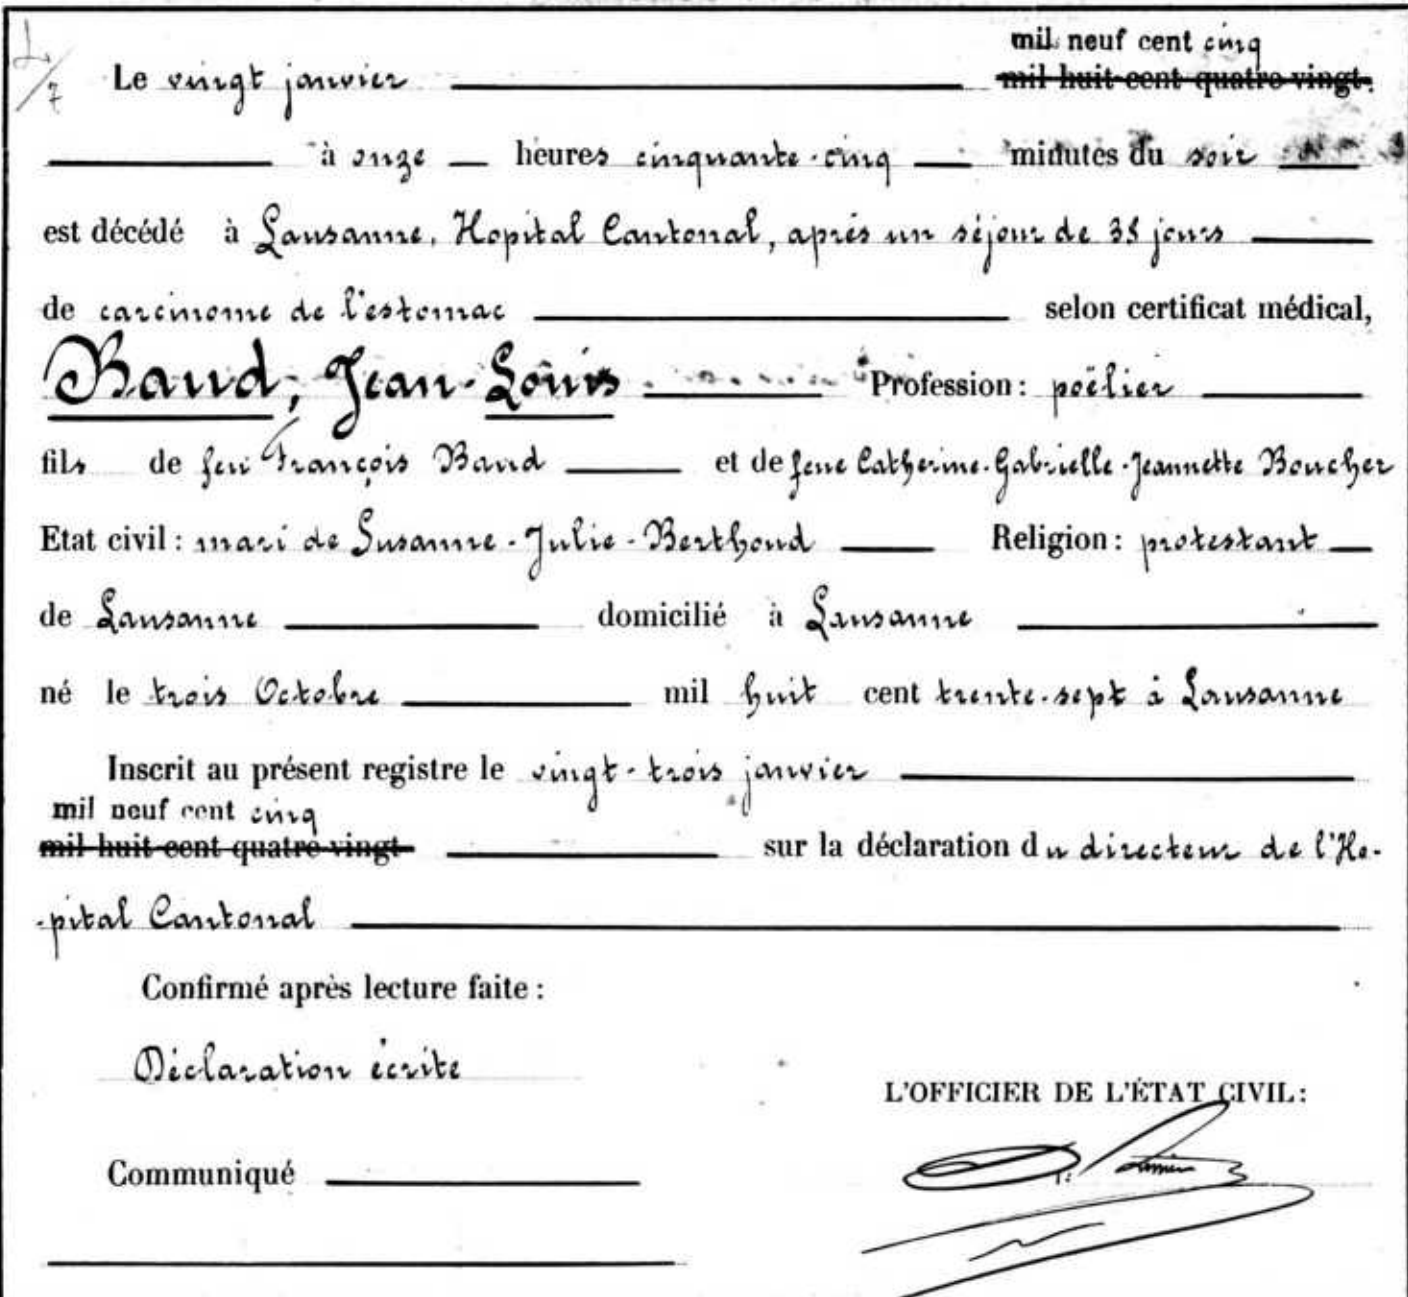 mil neuf cent cinq
Le vingt janvier mil huit cent quatre-vingt-
à onze heures cinquante-cinq minutes du soir
est décédé à Lausanne, Hopital Cantonal, après un séjour de 38 jours
de carcinome de l'estomac selon certificat médical,
Baud, Jean-Louis Profession: poëlier
fils de feu François Baud et de feue Catherine-Gabrielle-Jeannette Boucher
Etat civil: mari de Susanne-Julie-Berthoud Religion: protestant
de Lausanne domicilié à Lausanne
né le trois Octobre mil huit cent trente-sept à Lausanne
Inscrit au présent registre le vingt-trois janvier
mil neuf cent cinq
mil huit cent quatre vingt- sur la déclaration du directeur de l'Ho-
-pital Cantonal
Confirmé après lecture faite:
Déclaration écrite
L'OFFICIER DE L'ÉTAT CIVIL:
Communiqué